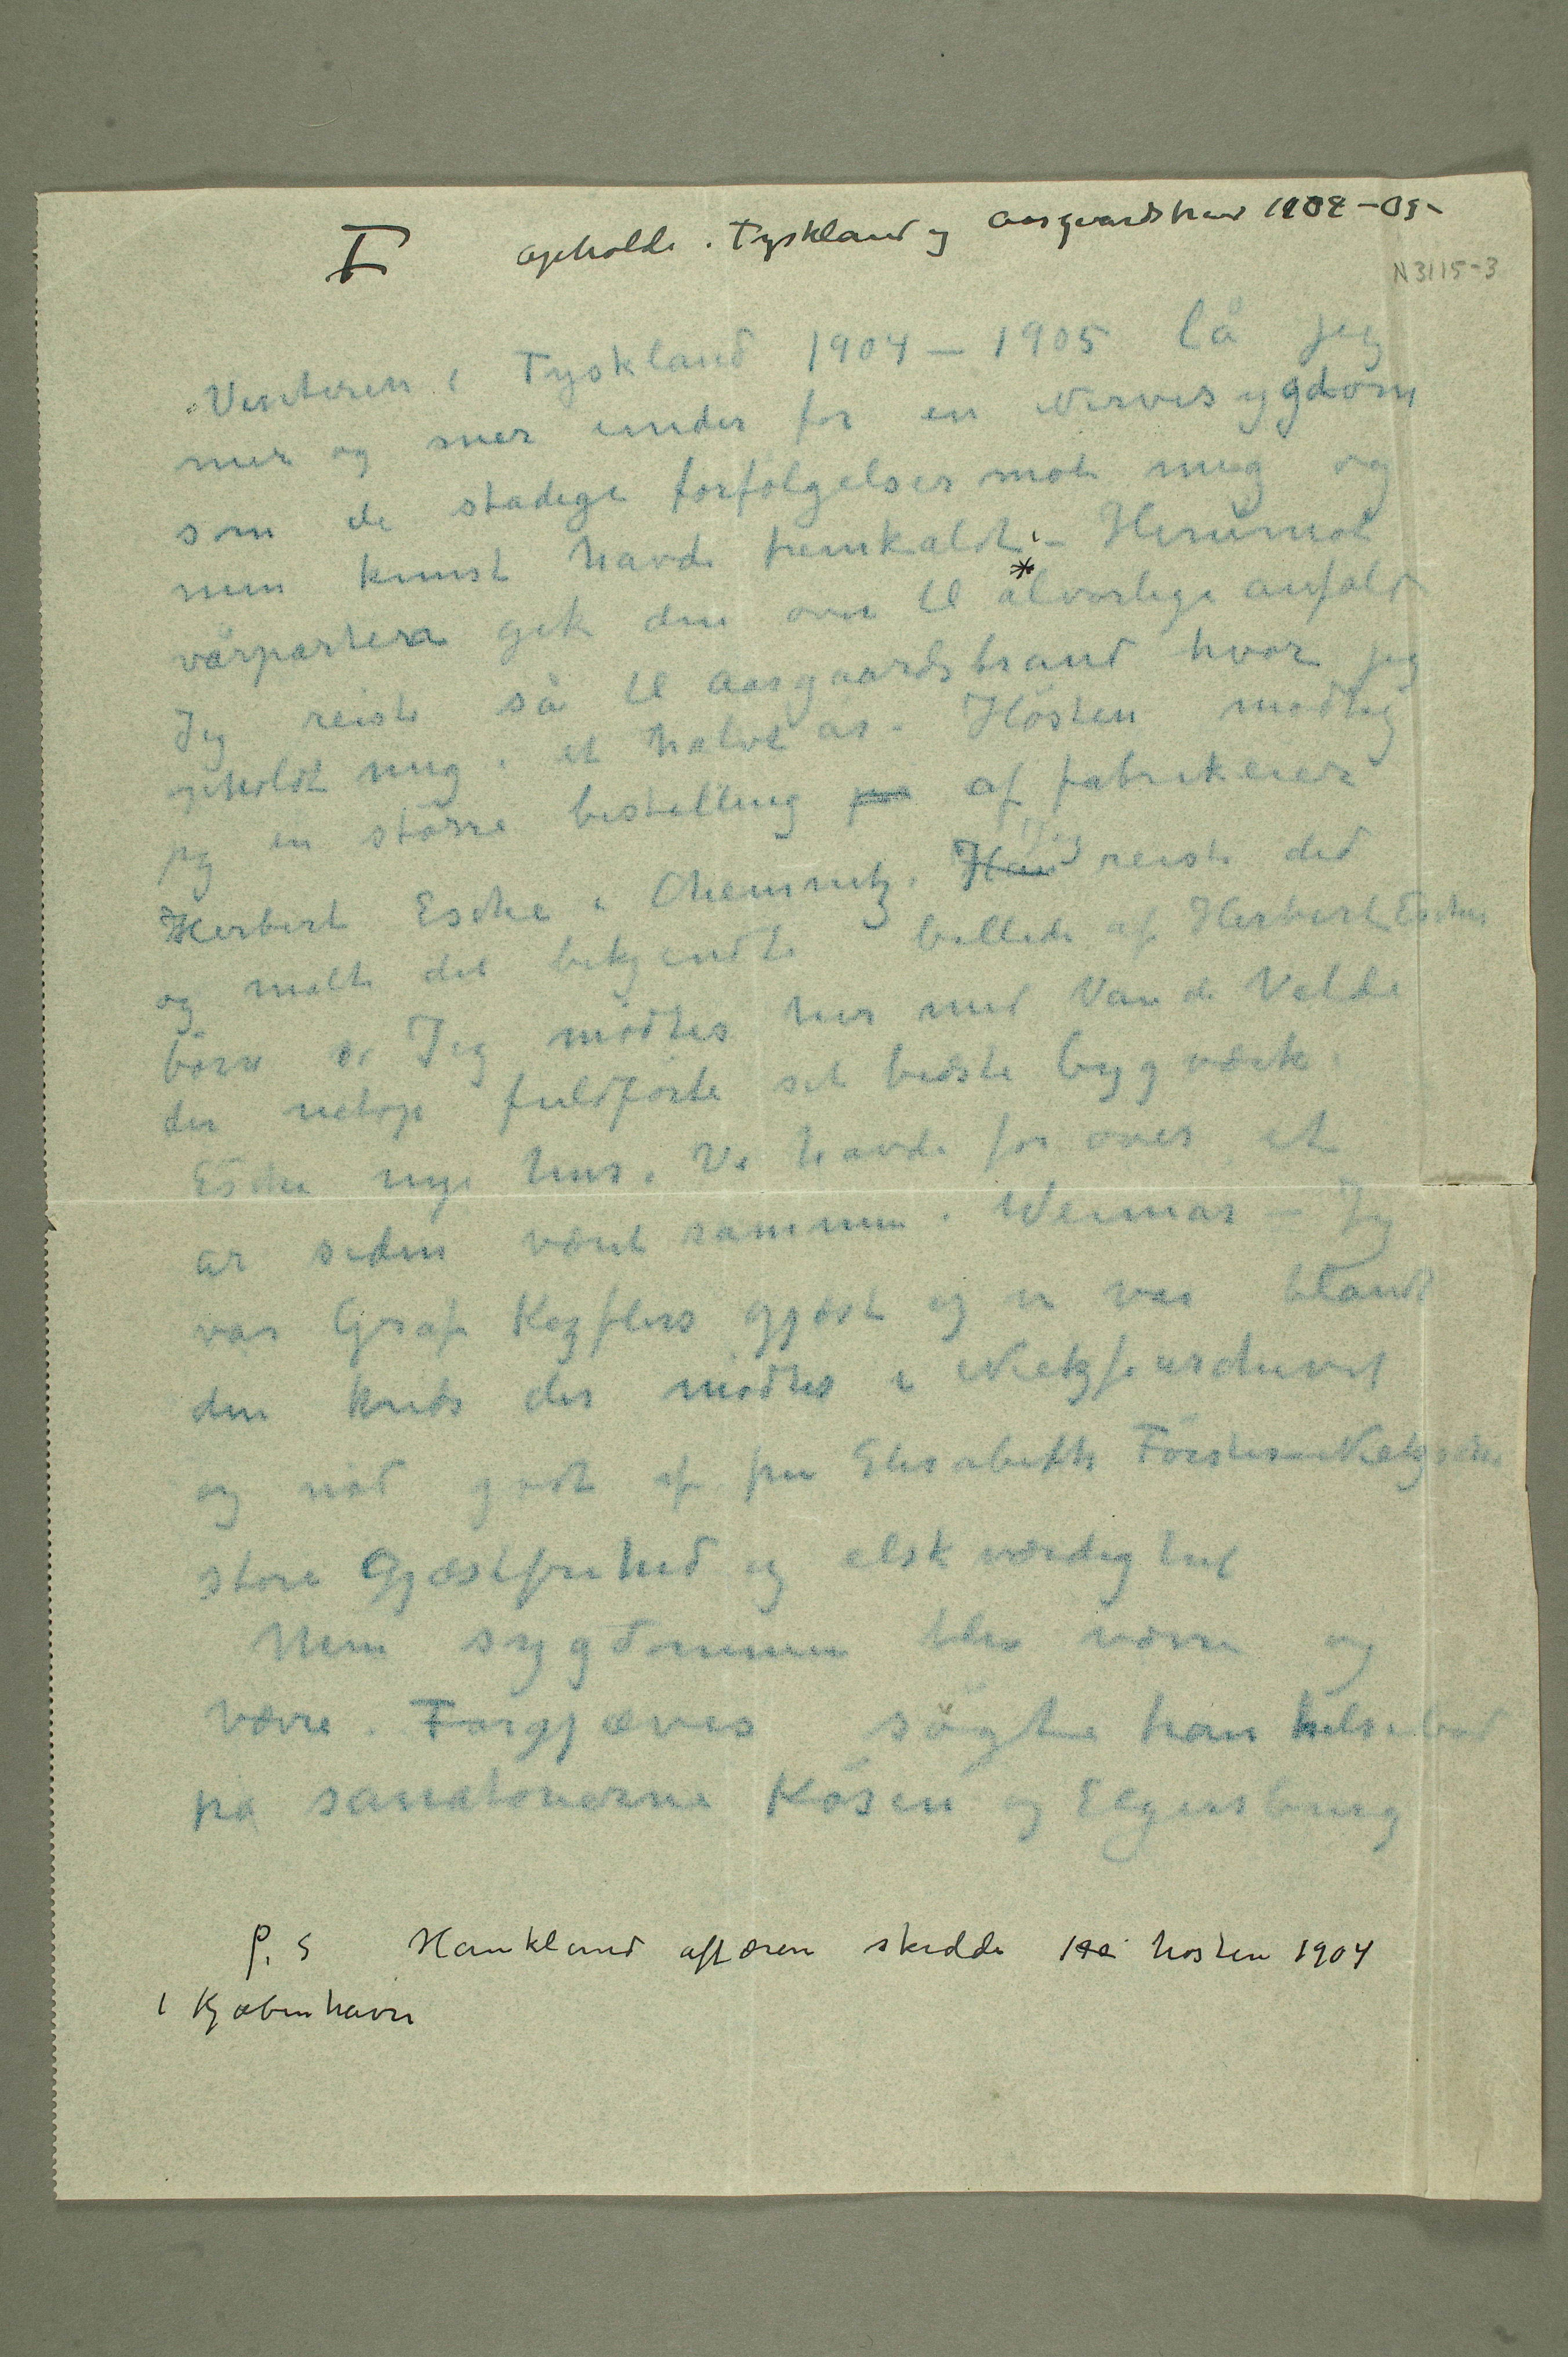 I opholdt i Tyskland og Aasgaardstrand 1904–05–
N 3115-3
Vinteren i Tyskland 1904 – 1905 lå jeg
mer og mer under for en Nervesygdom
som de stadige forfølgelser mod mig og
min kunst havde fremkaldt – Henimod
vårparten gik den over til alvorlige anfald
Jeg reiste så til Aasgaardstrand hvor jeg
opholdt mig i et halvt år – Høsten modtog
jeg en større bestilling på af fabrikeier
Herbert Esche i Chemnitz. Han Jeg reiste did
og malte det bekjendte billede af Herbert Esches
børn Jeg mødtes her med Van de Velde
der netop fuldførte sit bedste bygværk:
Esches nye hus. Vi havde for over et
år siden været sammen i Weimar – Jeg
var Graf Kezslers gjæst og vi var blandt
den kreds der mødtes i Nietzschearchivet
og nød godt af fru Elisabeth Förster-Nietzsches
store Gjæstfrihed og elskværdighed
Men sygdommen blev værre og
værre. Forgjæves søgte han helsebod
på sanatorierne Kösen og Elgersburg
P. S Haukland affæren skedde høsten 1904
i Kjøbenhavn